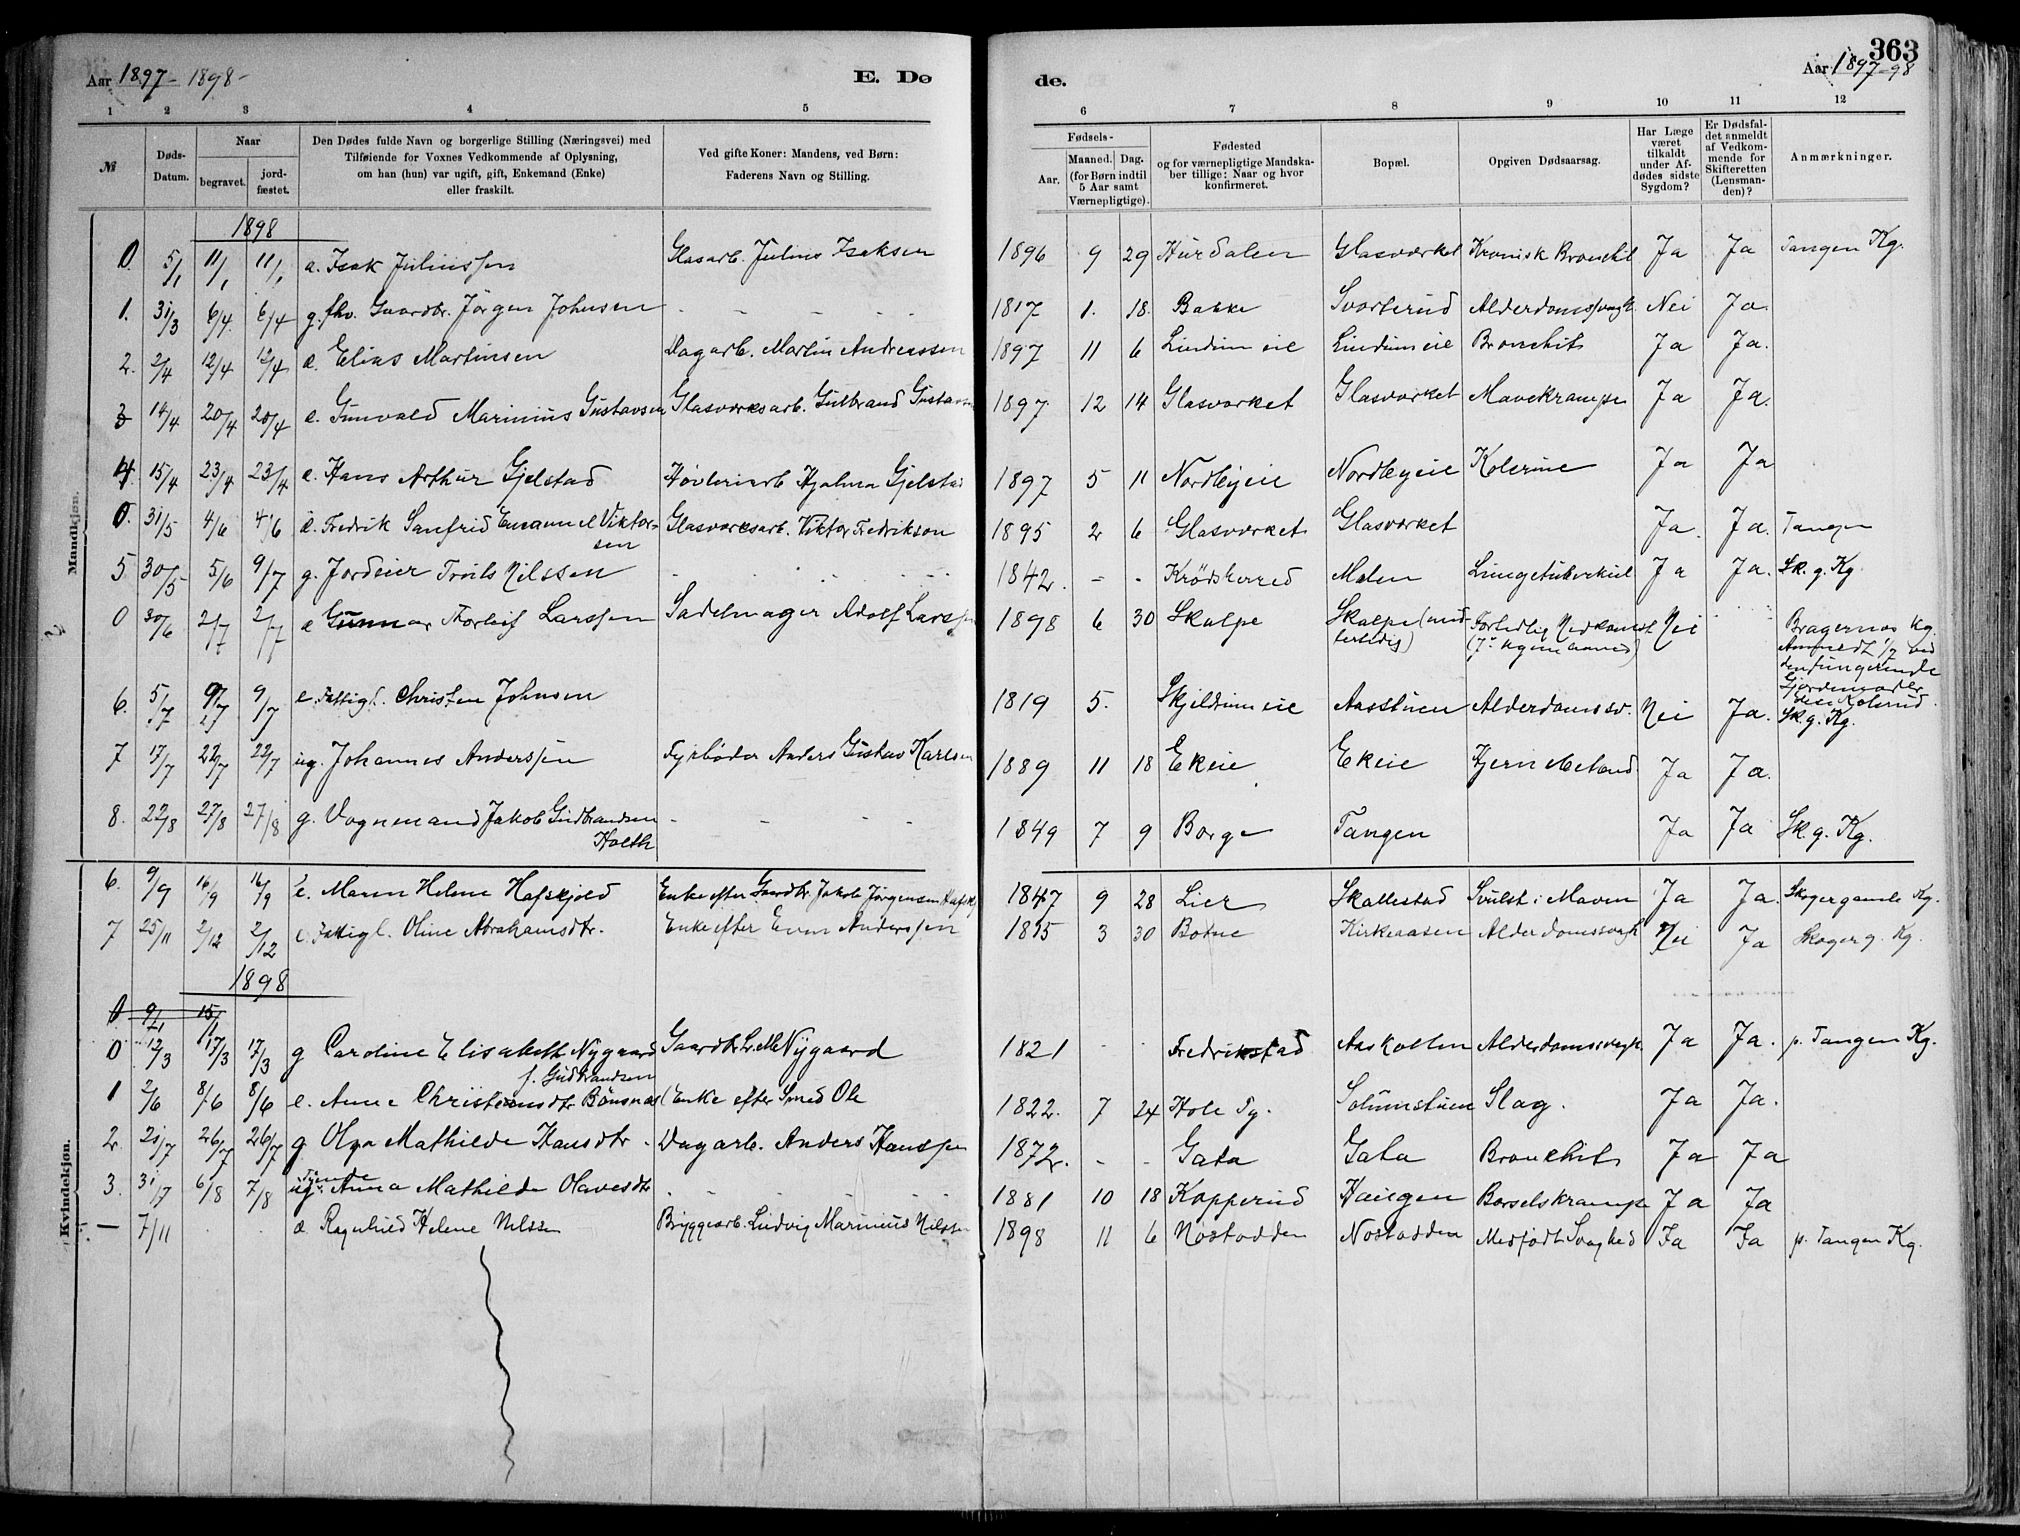 363
Aar 1897-1898- E. Dø
de. Aar 1897-98
1 2 3 4 5
6 7 8 9 10 11 12
№ Døds-Datum. Naar begravet. jord-fæstet. Den Dødes fulde Navn og borgerlige Stilling (Næringsvei) med Tilføiende for Voxnes Vedkommende af Oplysning, om han (hun) var ugift, gift, Enkemand (Enke) eller fraskilt. Ved gifte Koner: Mandens, ved Børn: Faderens Navn og Stilling.
Fødsels- Aar. Maaned. Dag. (for Børn indtil 5 Aar samt Værnepligtige). Fødested og for værnepligtige Mandska-ber tillige: Naar og hvor konfirmeret. Bopæl. Opgiven Dødsaarsag. Har Læge været tilkaldt under Af-dødes sidste Sygdom? Er Dødsfal-det anmeldt af Vedkom-mende for Skifteretten (Lensman-den)? Anmærkninger.
Mandkjøn.
1898
0. 5/1 11/1 11/1 a. Isak Juliussen Glasarb. Julius Isaksen 1896 9 29 Hurdalen Glasværket Kronisk Bronchit Ja Ja Tangen Kg.
1. 31/3 6/4 6/4 g. fhv. Gaardbr. Jörgen Johnsen - - - - 1817 1. 18. Bakke Svarterud Alderdomssvagh. Nei Ja.
2. 2/4 12/4 12/4 e. Elias Martinsen Dagarb. Martin Andreassen 1897 11 6 Lindum eie Lindum eie Bronchit Ja Ja.
3 14/4 20/4 20/4 e. Gunvald Marinius Gustavsen Glasværksarb. Gulbrand Gustavsen 1897 12 14 Glasværket Glasværket Mavekrampe Ja Ja.
4. 15/4 23/4 23/4 e. Hans Arthur Gjelstad Høvleriarb Hjalmar Gjelstad 1897 5 11 Nordbyeie Nordbyeie Kolerine Ja Ja
0. 31/5 4/6 4/6 e. Fredrik Sanfrid Emanuel Viktor-sen Glasværksarb. Viktor Fredrikson 1895 2 6 Glasværket Glasværket Ja. Ja. Tangen
5 30/5 5/6 9/7 g. Jordeier Troils Nilssen 1842. - - Krödsherred Malen Lungetuberkul Ja Ja. Sk. g. Kg
0 30/6 2/7 2/7 e Gunnar Thorleif Larssen Sadelmager Adolf Larssen 1898 6 30 Skalpe Skalpe (mid-lertidig) Fortidlig Nedkomst (7de Svgm maaned) Nei Bragernæs Kg. Anmeldt 1/7 ved den fungerende Gjordemoder
6. 5/7 9/7 9/7 e. Fattigl. Christen Johnsen 1819 5. Skjeldrum eie Aasstuen Alderdomssv. Nei Ja. Sk. g. Kg.
7 17/7 22/7 22/7 ug. Johannes Anderssen Fyrbøder Anders Gustav Karlsen 1889 11 18 Ekeie Ekeie Hjernebetænd Ja Ja.
8. 22/8 27/8 27/8 g. Vognmand Jakob Gudbrandsen Holth - - - - 1849 7 9 Borge Tangen Ja Ja Sk g. Kg.
Kvindekjøn.
6. 9/9 16/9 16/9 e. Maren Helene Hafskjold Enke efter Gaardbr. Jakob Jørgensen Hafskj 1847 9 28 Lier Skallestad Svulst i Maven Ja Ja. Skoger gamle Kg.
7 25/11 2/12 2/12 e. Fattigl. Oline Abrahamsdtr. Enke efter Even Anderssen 1815 3 30 Botne Kirkeaasen Alderdomssvagh Nei Ja Skoger g. Kg.
1898
0. 9/1 15/1
0 12/3 17/3 17/3 g Caroline Elisabeth Nygaard f. Gudbrandsen Gaardbr. L. M. Nygaard 1821 - - Fredrikstad Aaskollen Alderdomssvagh. Ja Ja. p. Tangen Kg.
1 2/6 8/6 8/6 e. Anne Christensdtr Bönsnæs (Enke efter Smed Ole 1822. 7 24 Hole Pg. Solumstuen Slag. Ja Ja.
2. 21/7 26/7 26/7 g Olga Mathilde Hansdtr. Dagarb. Anders Hanssen 1872. - - Gata Gata Bronchit Ja Ja
3. 31/7 6/8 7/8 ug. Tjen. Anna Mathilde Olavesdtr 1881 10 18 Kopperud Haugen Barselskrampe Ja Ja
— 7/11 e Ragnhild Helene Nilssen Bryggearb. Ludvig Marinius Nilssen 1898 11 6 Nøstodden Nøstodden Medfødt Svaghed Ja Ja p. Tangen Kg.